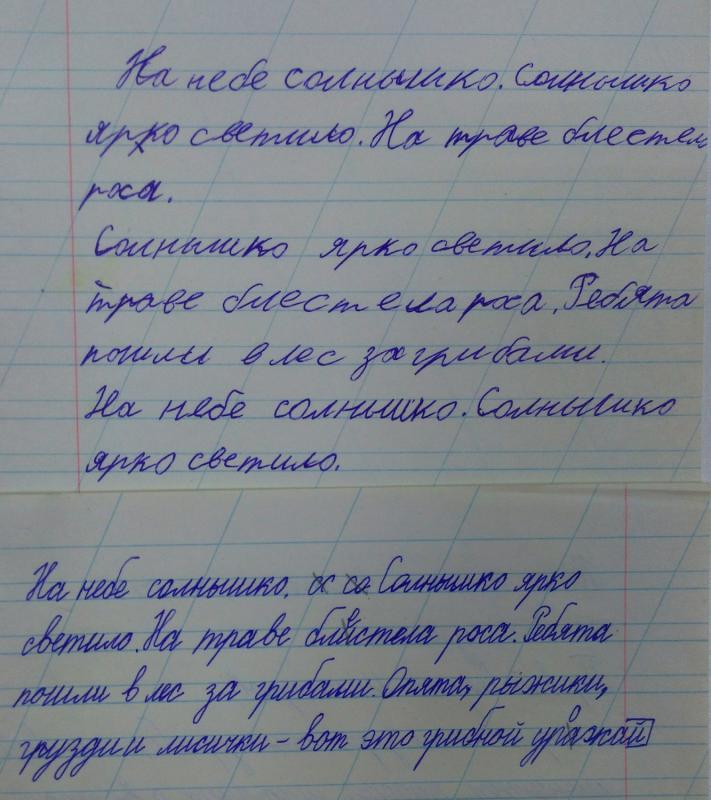 На небе солнышко. Солнышко
ярко светило. На траве блестела
роса.
Солнышко ярко светило. На
траве блестела роса. Ребята
пошли в лес за грибами.
На небе солнышко. Солнышко
ярко светило.
На небе солнышко. Солнышко ярко
светило. На траве блестела роса. Ребята
пошли в лес за грибами. Опята, рыжики,
грузди и лисички - вот это грибной урожай